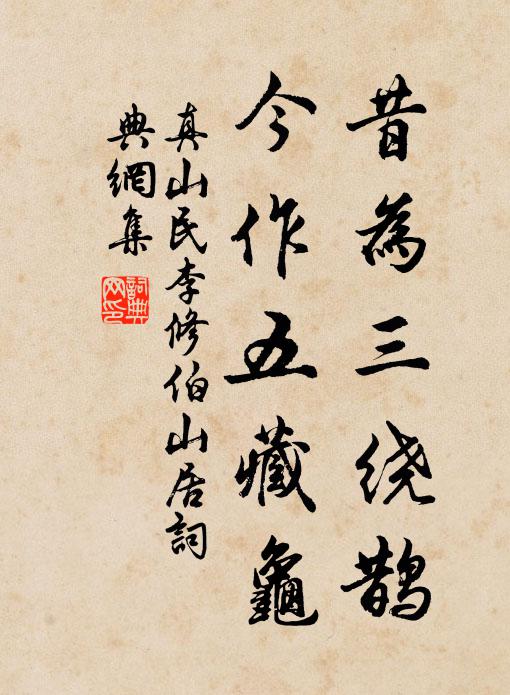 昔為三绕鹊
今作五藏龜
真山民李修伯山居詞
典網集
詞典网印